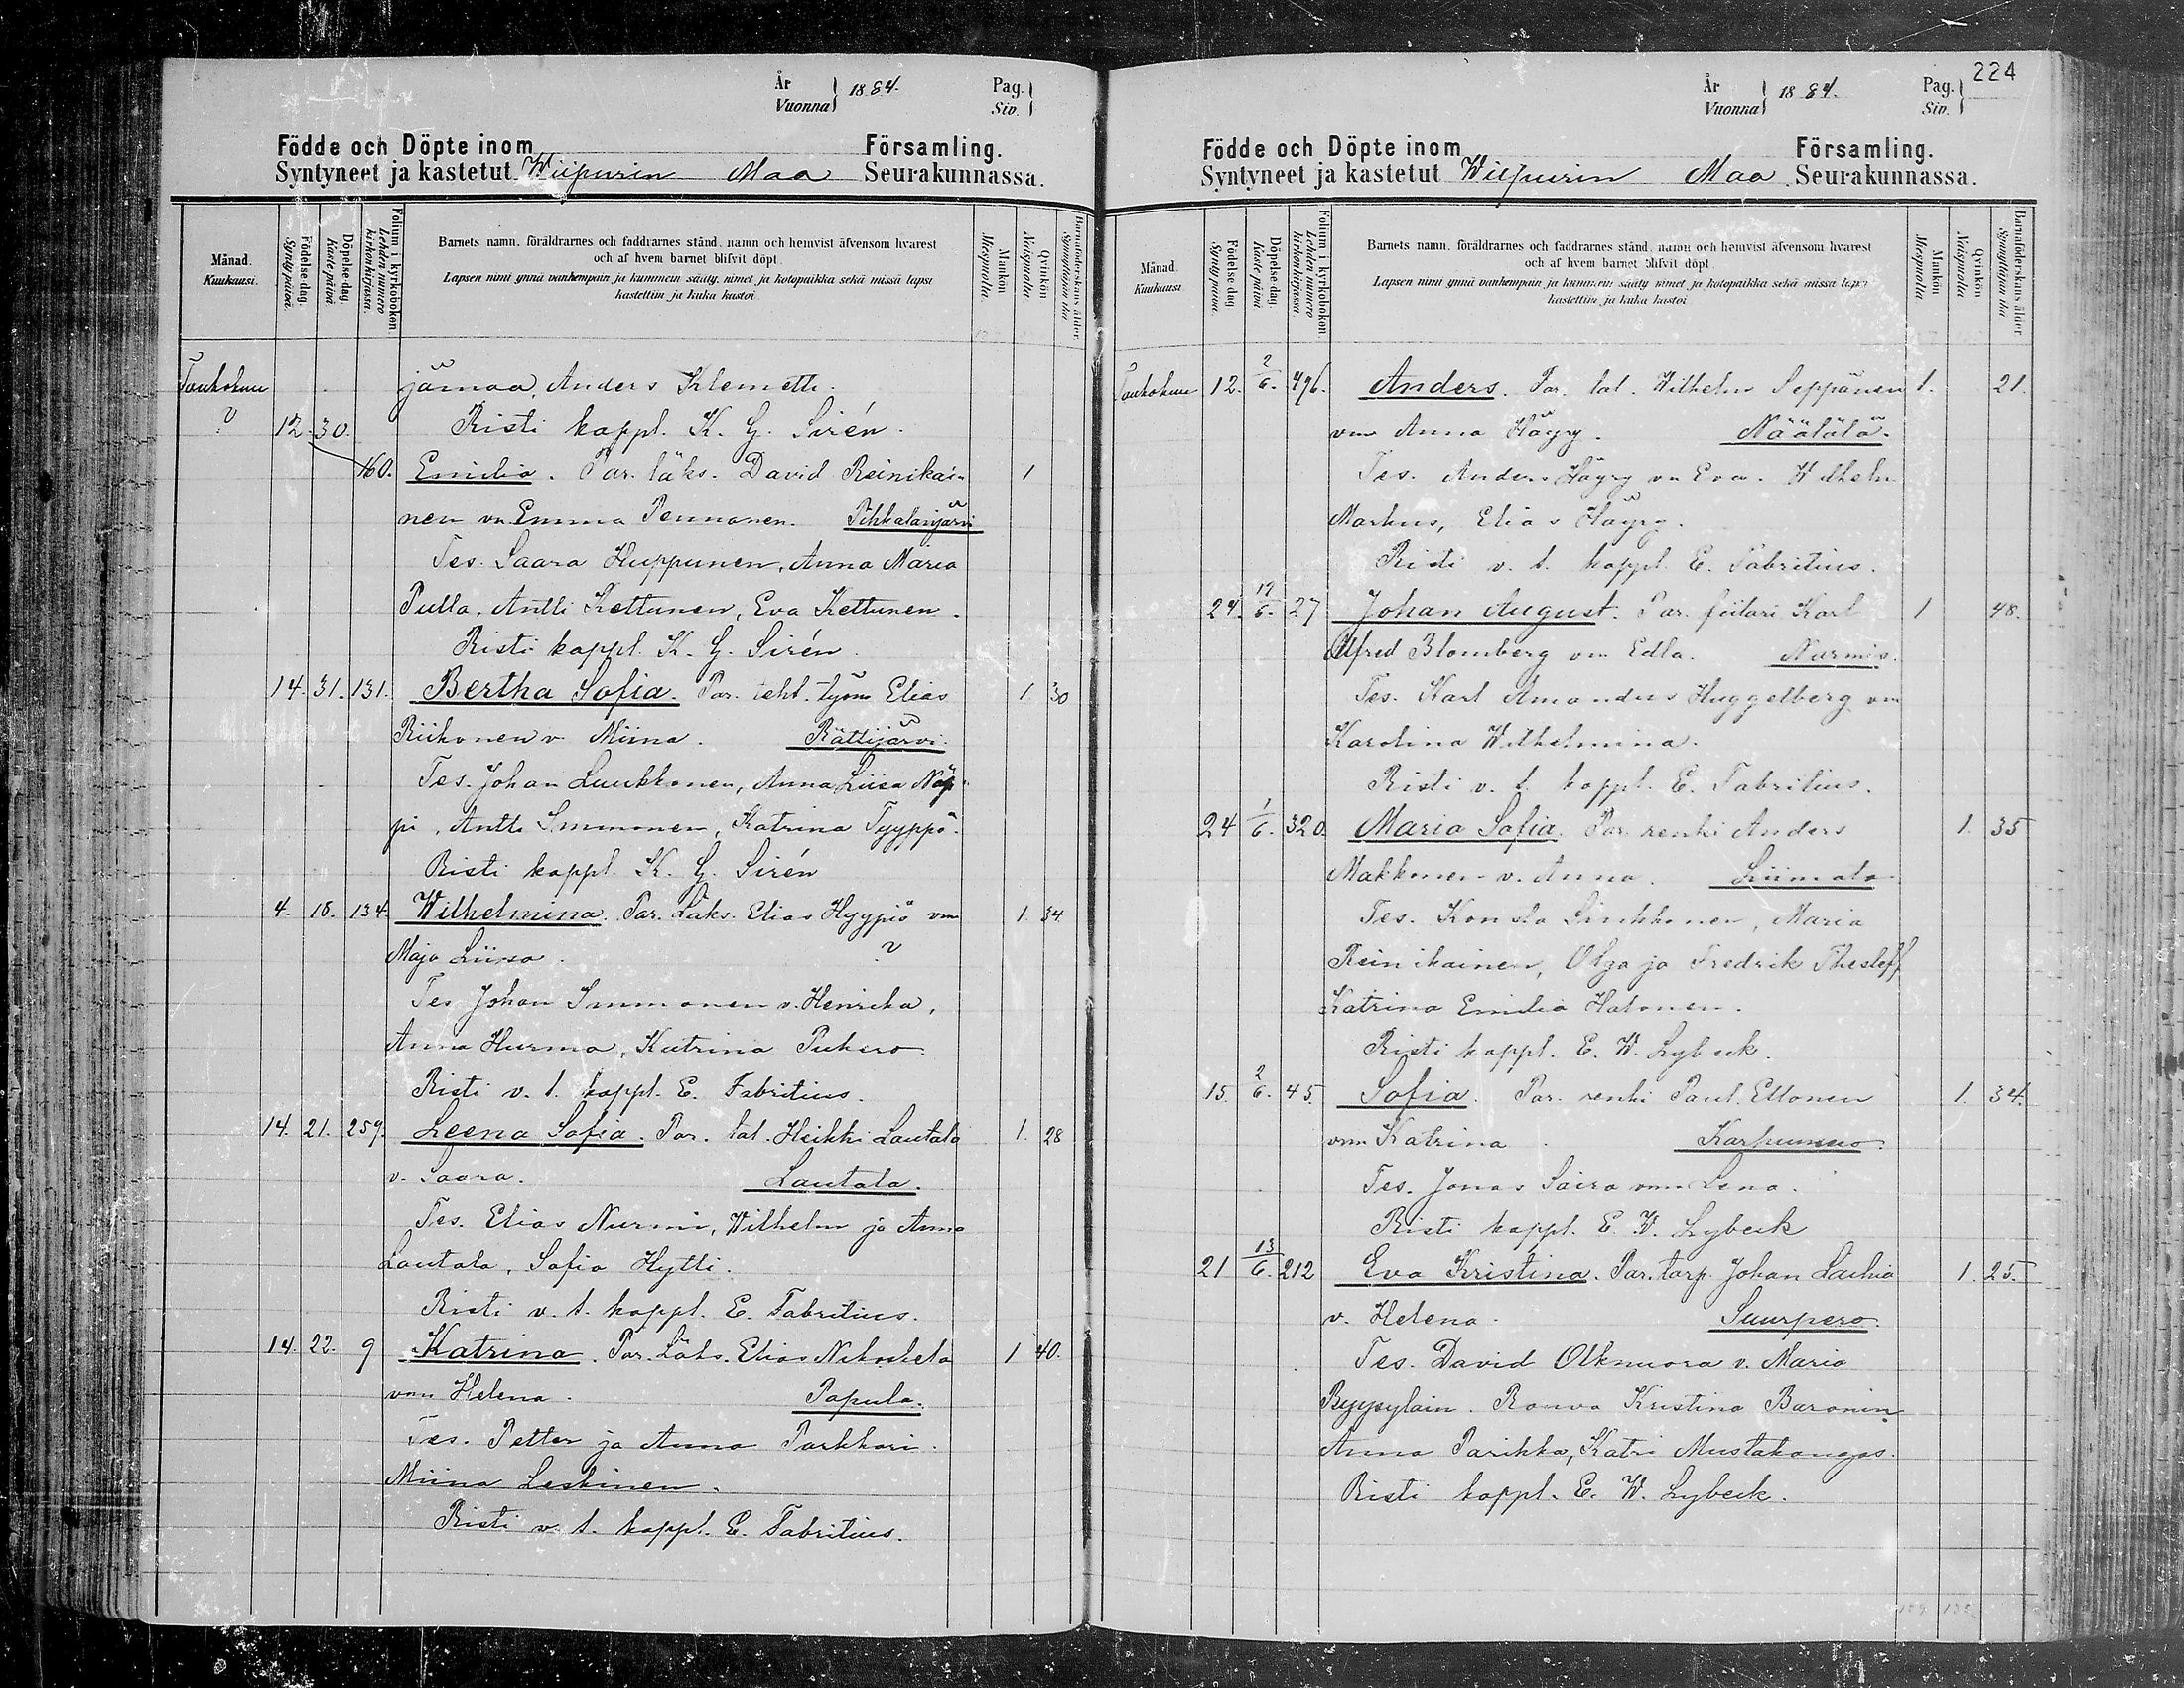 År
Vuonna } 1884. Pag.
Siv. }
Födde och Döpte inom Församling.
Syntyneet ja kastetut Wiipurin Maa Seurakunnassa.
Månad.
Kuukausi.
Födelse-dag.
Syntypäivä.
Döpelse-dag.
Kastepäivä
Folium i kyrkoboken
Lehden numero
kirkonkirjassa.
Barnets namn, föräldrarnes och faddrarnes stånd, namn och hemvist äfvensom hvarest
och af hvem barnet blifvit döpt.
Lapsen nimi ynnä vanhempain ja kummein sääty, nimet ja kotopaikka sekä missä lapsi
kastettiin ja kuka kastoi.
Mankön
Miespuolia.
Qvinkön
Naispuolia.
Barnaföderskans ålder.
Synnyttäjän ikä
Toukokuu jämaa, Anders Klemetti.
? 12. 30. Risti kappl. K. G. Sirén.
160. Emilia. Par. läks. David Reinikai- 1
nen vn Emma Pennanen. Pihkalanjärvi
Tes. Saara Huppunen, Anna Maria
Pulla, Antti Kettunen, Eva Kettunen.
Risti kappl. K. G. Sirén.
14. 31. 131. Bertha Sofia. Par. teht. työm Elias 1. 30
Riikonen v. Miina. Rättijärvi.
Tes. Johan Luukkonen, Anna Liisa Näp-
pi, Antti Immonen, Katrina Tyyppö.
Risti kappl. K. G. Sirén
4. 18. 134. Wilhelmina. Par. Läks. Elias Hyypiö vm 1. 34.
Maja Liisa. ?
Tes Johan Immonen v. Henrika,
Anna Hurma, Katrina Pukero.
Risti v. t. kappl. E. Fabritius.
14. 21. 259. Leena Sofia. Par. tal. Heikki Lautala 1. 28
v. Saara. Lautala.
Tes. Elias Nurmi, Wilhelm ja Anna
Lautala, Sofia Hytti.
Risti v. t. kappl. E. Fabritius.
14. 22. 9 Katrina. Par. Läks. Elias Nikoskela 1 40.
vm Helena. Papula.
Tes. Petter ja Anna Parkkari.
Miina Leskinen.
Risti v. t. kappl. E. Fabritius.
224
År
Vuonna } 1884. Pag.
Siv. }
Födde och Döpte inom Församling.
Syntyneet ja kastetut Wiipurin Maa Seurakunnassa.
Månad.
Kuukausi
Födelse-dag.
Syntypäivä.
Döpelse-dag.
Kastepäivä
Folium i kyrkoboken.
Lehden numero
kirkonkirjassa.
Barnets namn, föräldrarnes och faddrarnes stånd, namn och hemvist äfvensom hvarest
och af hvem barnet blifvit döpt.
Lapsen nimi ynnä vanhempain ja kummein sääty nimet ja kotopaikka sekä missä lapsi
kastettiin ja kuka kastoi
Mankön
Miespuolia
Qvinkön
Naispuolia
Barnaföderskans ålder
Synnyttäjän ikä
Toukokuu 12. 2/6. 496. Anders. Par. tal. Wilhelm Seppänen 1. 21.
vm Anna Häyry. Näätälä.
Tes. Anders Häyry vn Eva. Wilhelm
Markus, Elias Häyry.
Risti v. t. kappl. E. Fabritius.
24. 19/6. 27 Johan August. Par. fiilari Karl 1 48.
Alfred Blomberg vm Edla. Nurmis.
Tes. Karl Amandus Huggelberg vm
Karolina Wilhelmina.
Risti v. t. kappl. E. Fabritius.
24 1/6. 320. Maria Sofia. Par. renki Anders 1. 35
Makkonen v. Anna. Liimata
Tes. Konsta Sinkkonen, Maria
Reinikainen, Olga ja Fredrik Thesleff
Katrina Emilia Halonen.
Risti kappl. E. W. Lybeck.
15. 2/6. 45. Sofia. Par. renki Paul Ellonen 1. 34.
vm Katrina. Karhusuo.
Tes. Jonas Saira vm Lena.
Risti kappl. E. W. Lybeck
21 13/6. 212 Eva Kristina. Par. torp. Johan Laihia 1. 25.
v. Helena. Suurpero.
Tes. David Olkinuora v. Maria
Ryypylain. Rouva Kristina Baronin
Anna Parikka, Katri Mustakangas.
Risti kappl. E. W. Lybeck.